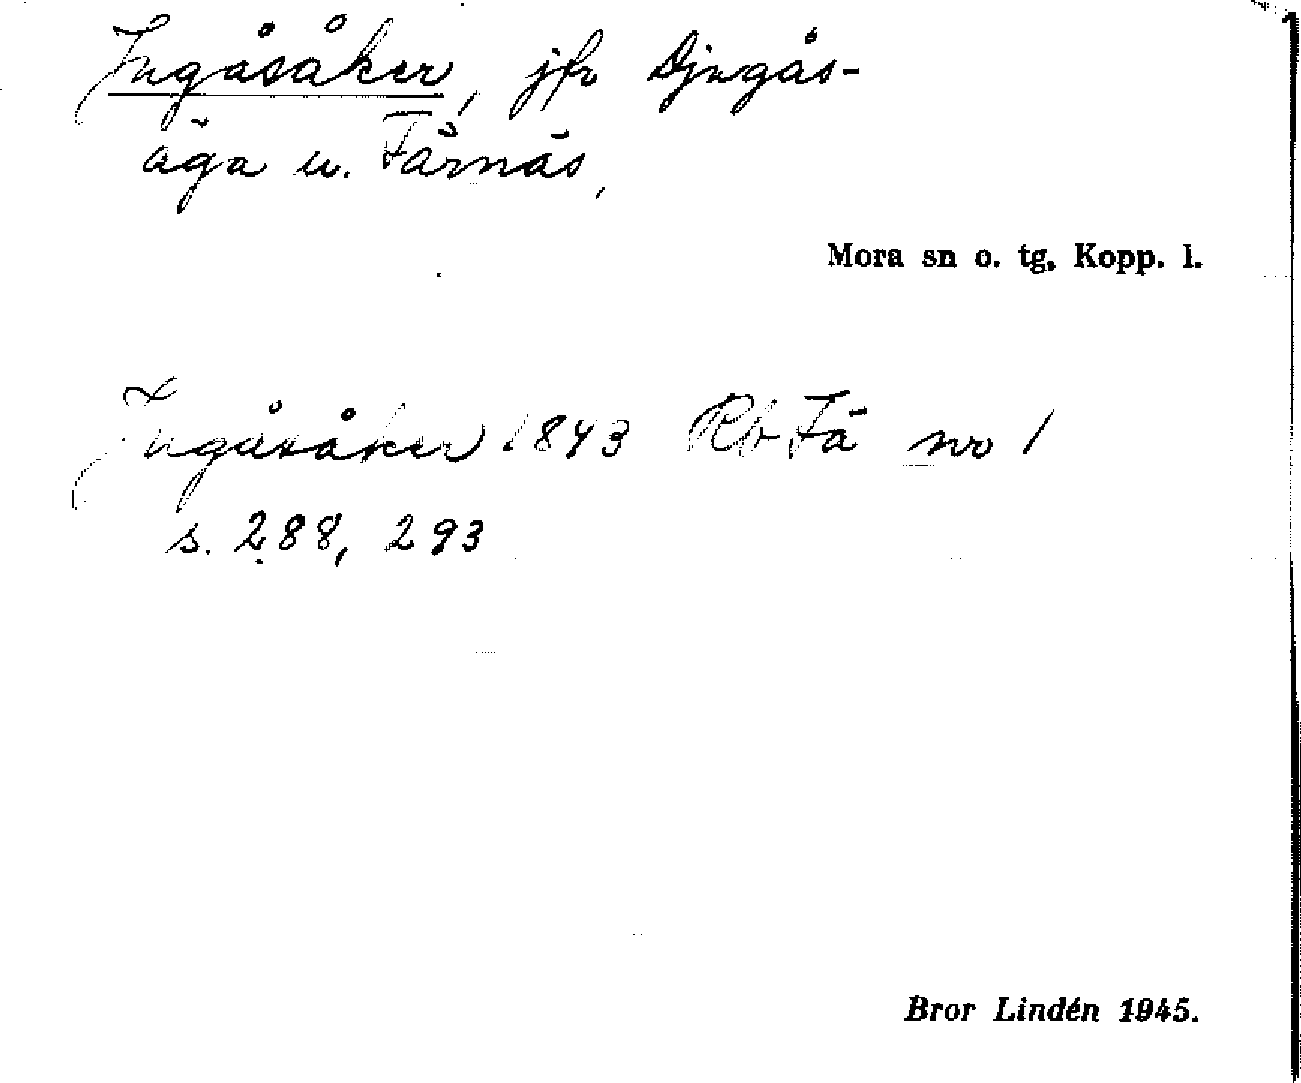 Ingåsåker, jfr Djngås-
äga u. Färnäs,
Mora sn o. tg. Kopp. l.
Ingåsåker 1843 Rb Fä no 1
s. 288, 293
Bror Lindén 1945.